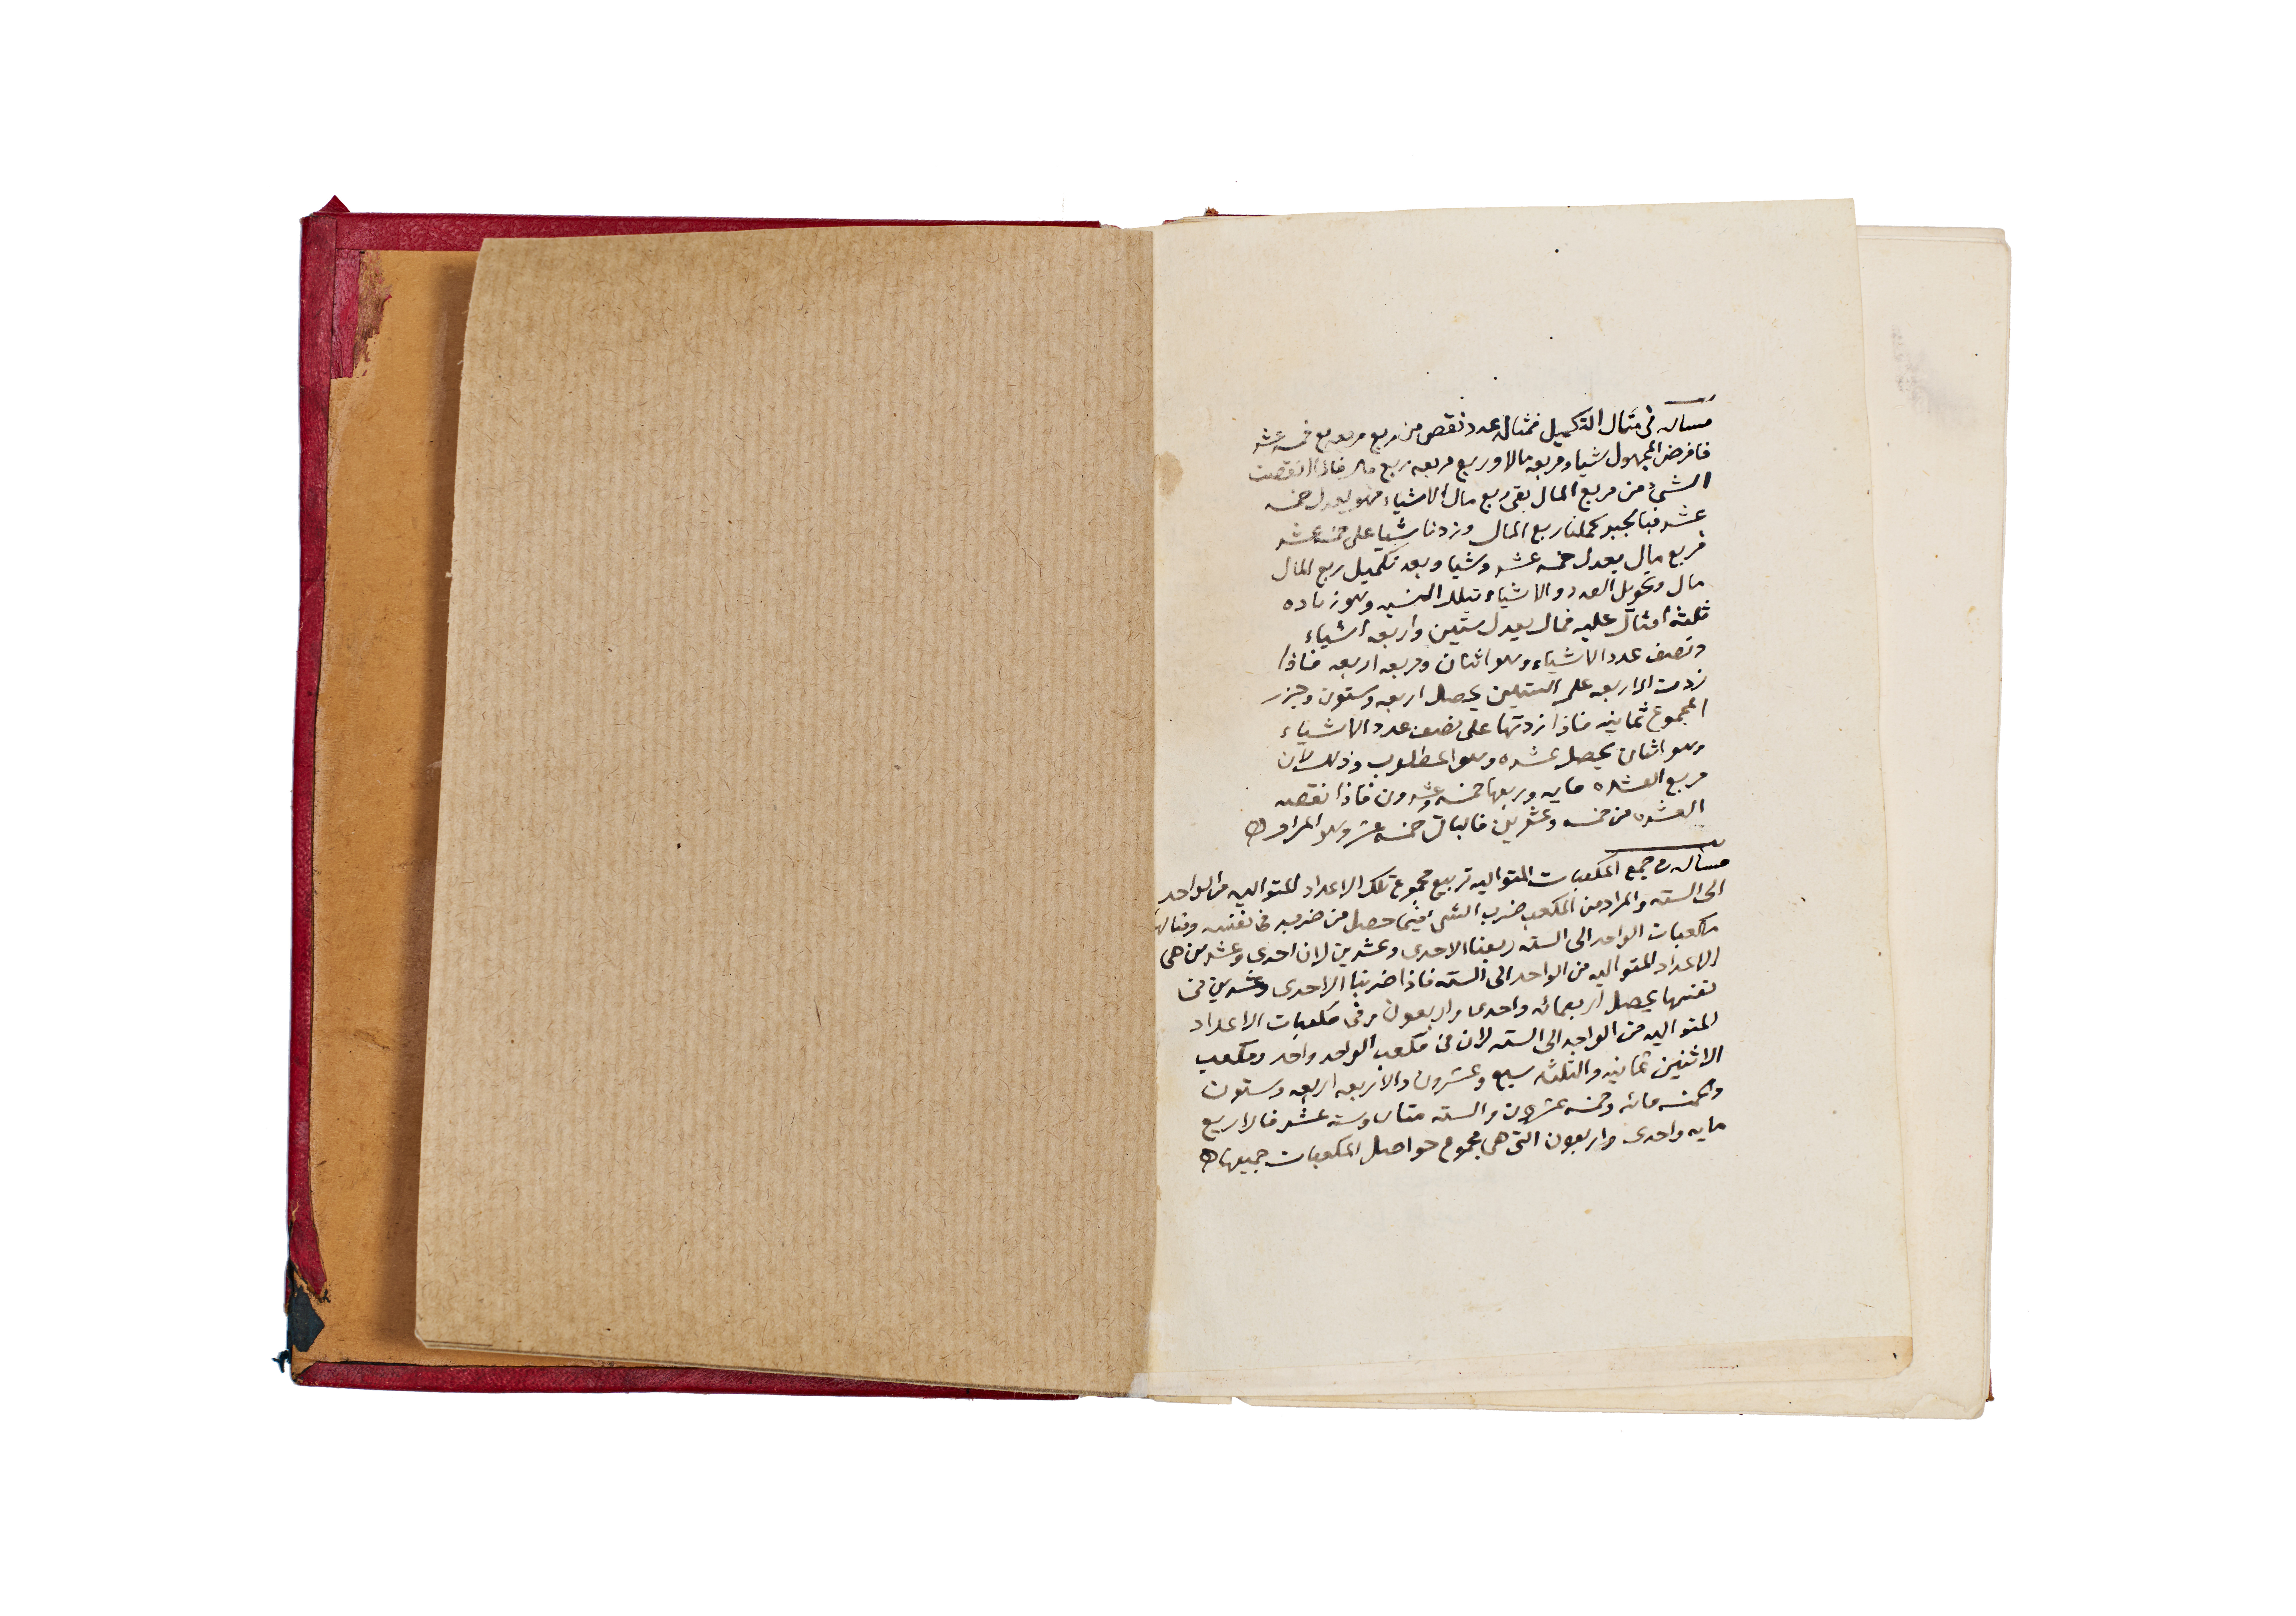 مساله فى مثال التكميل فمثال عدد نقص من ربع مربعه بقى خمسه عشر
فافرض المجهول شيا ومربعه مالا وربع مربعه ربع مال فاذا انقصت
الشىء من ربع المال بقى ربع مال الا شياء فهو يعدل خمسه
عشر فبالجبر كملنا ربع المال وزدنا شيا على خمسه عشر
فربع مال يعدل خمسه عشر وشيا وبعد تكميل ربع المال
مال وتحويل العدد والاشياء بتلك النسبه وهو زياده
ثلثه امثال عليه فمال يعدل ستين واربعه اشياء
ونصف عدد الاشياء وهو اثنان ومربعه اربعه فاذا
زدت الاربعه على الستين يحصل اربعه وستون وجزر
المجموع ثمانيه فاذا زدتها على نصف عدد الاشياء
وهو اثنان يحصل عشره وهو المطلوب وذلك لان
مربع العشره مايه وربعها خمسه وعشرون فاذا نقصت
العشره من خمسه وعشرين فالباقى خمسه عشر وهو المراد
مساله فى جمع المكعبات المتواليه تربيع مجموع تلك الاعداد المتواليه من الواحد
الى السته والمراد من المكعب ضرب الشىء فيما حصل من ضربه فى نفسه ومثالها
مكعبات الواحد الى السته ربعنا الاحدى وعشرين لان احدى وعشرين هى
الاعداد المتواليه من الواحد الى السته فاذا ضربنا الاحدى وعشرين فى
نفسها يحصل اربعمائه واحدى واربعون وفى مكعبات الاعداد
المتواليه من الواحد الى السته لان فى مكعب الواحد واحد ومكعب
الاثنين ثمانيه والثلثه سبع وعشرون والاربعه اربعه وستون
والخمسه مائه وخمسه عشرون والسته متان وسته عشر فالاربع
مايه واحدى واربعون التى هى مجموع حواصل المكعبات جميعها